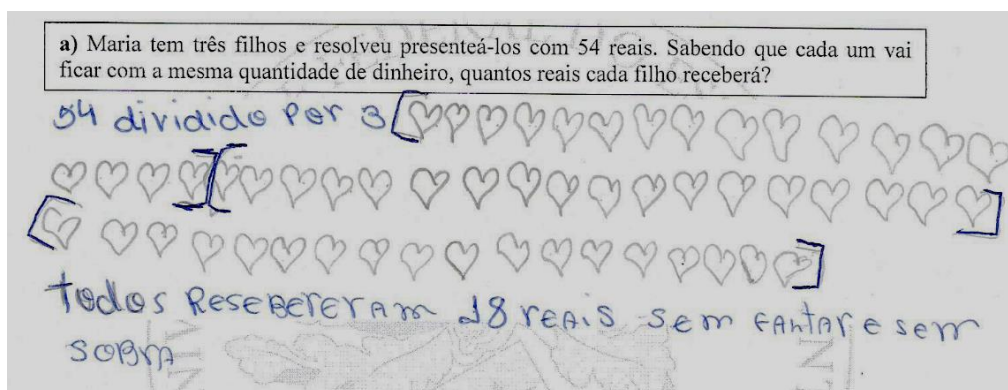 a) Maria tem três filhos e resolveu presenteá-los com 54 reais. Sabendo que cada um vai
ficar com a mesma quantidade de dinheiro, quantos reais cada filho receberá?
54 dividido Por 3
todos ReseBereram 18 reais sem fantar e sem
sobra